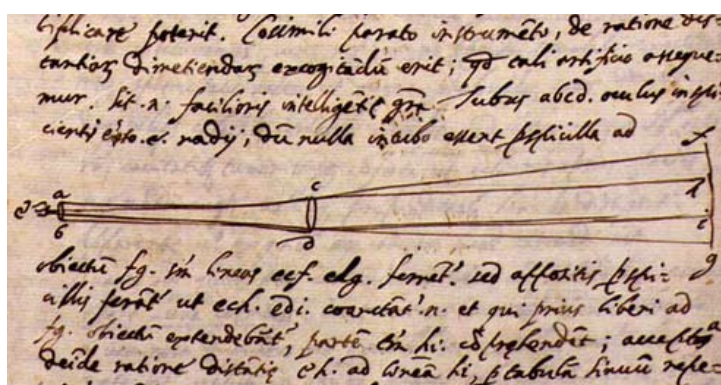 tiplicare poterit. Cosimili parato instrumēto, de ratione dis-
tantiaꝝ dimetiendaꝝ excogitādū erit; qd tali artificio asseque-
mur. Sit .n. facilioris intelligētię grā Tubus abcd. oculus inspi-
cientis esto .e. radij, dū nulla in tubo essent pspicilla ad
f
a c h
e
b d i
g
obiectū fg. lineas ecf. edg. ferrēt. sed appositis pspi-
cillis ferāt ut ech. edi. coarctāt .n. et qui prius liberi ad
fg. obiectū extendebāt, partē tm hi. cōprehendēt; accepta
deīde ratione distātię eh. ad lineā hi, p tabulā sinuū repe-